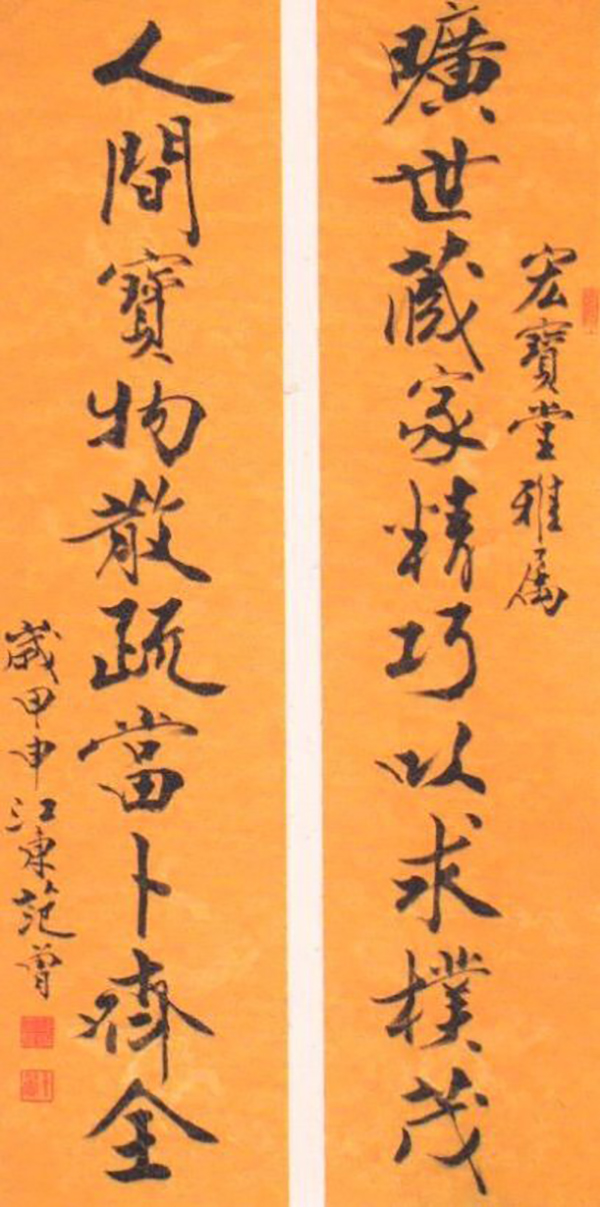 宏寶堂雅属
曠世藏家精巧以求樸茂
人間寶物散疏當卜齊全
歲甲申江東范曾